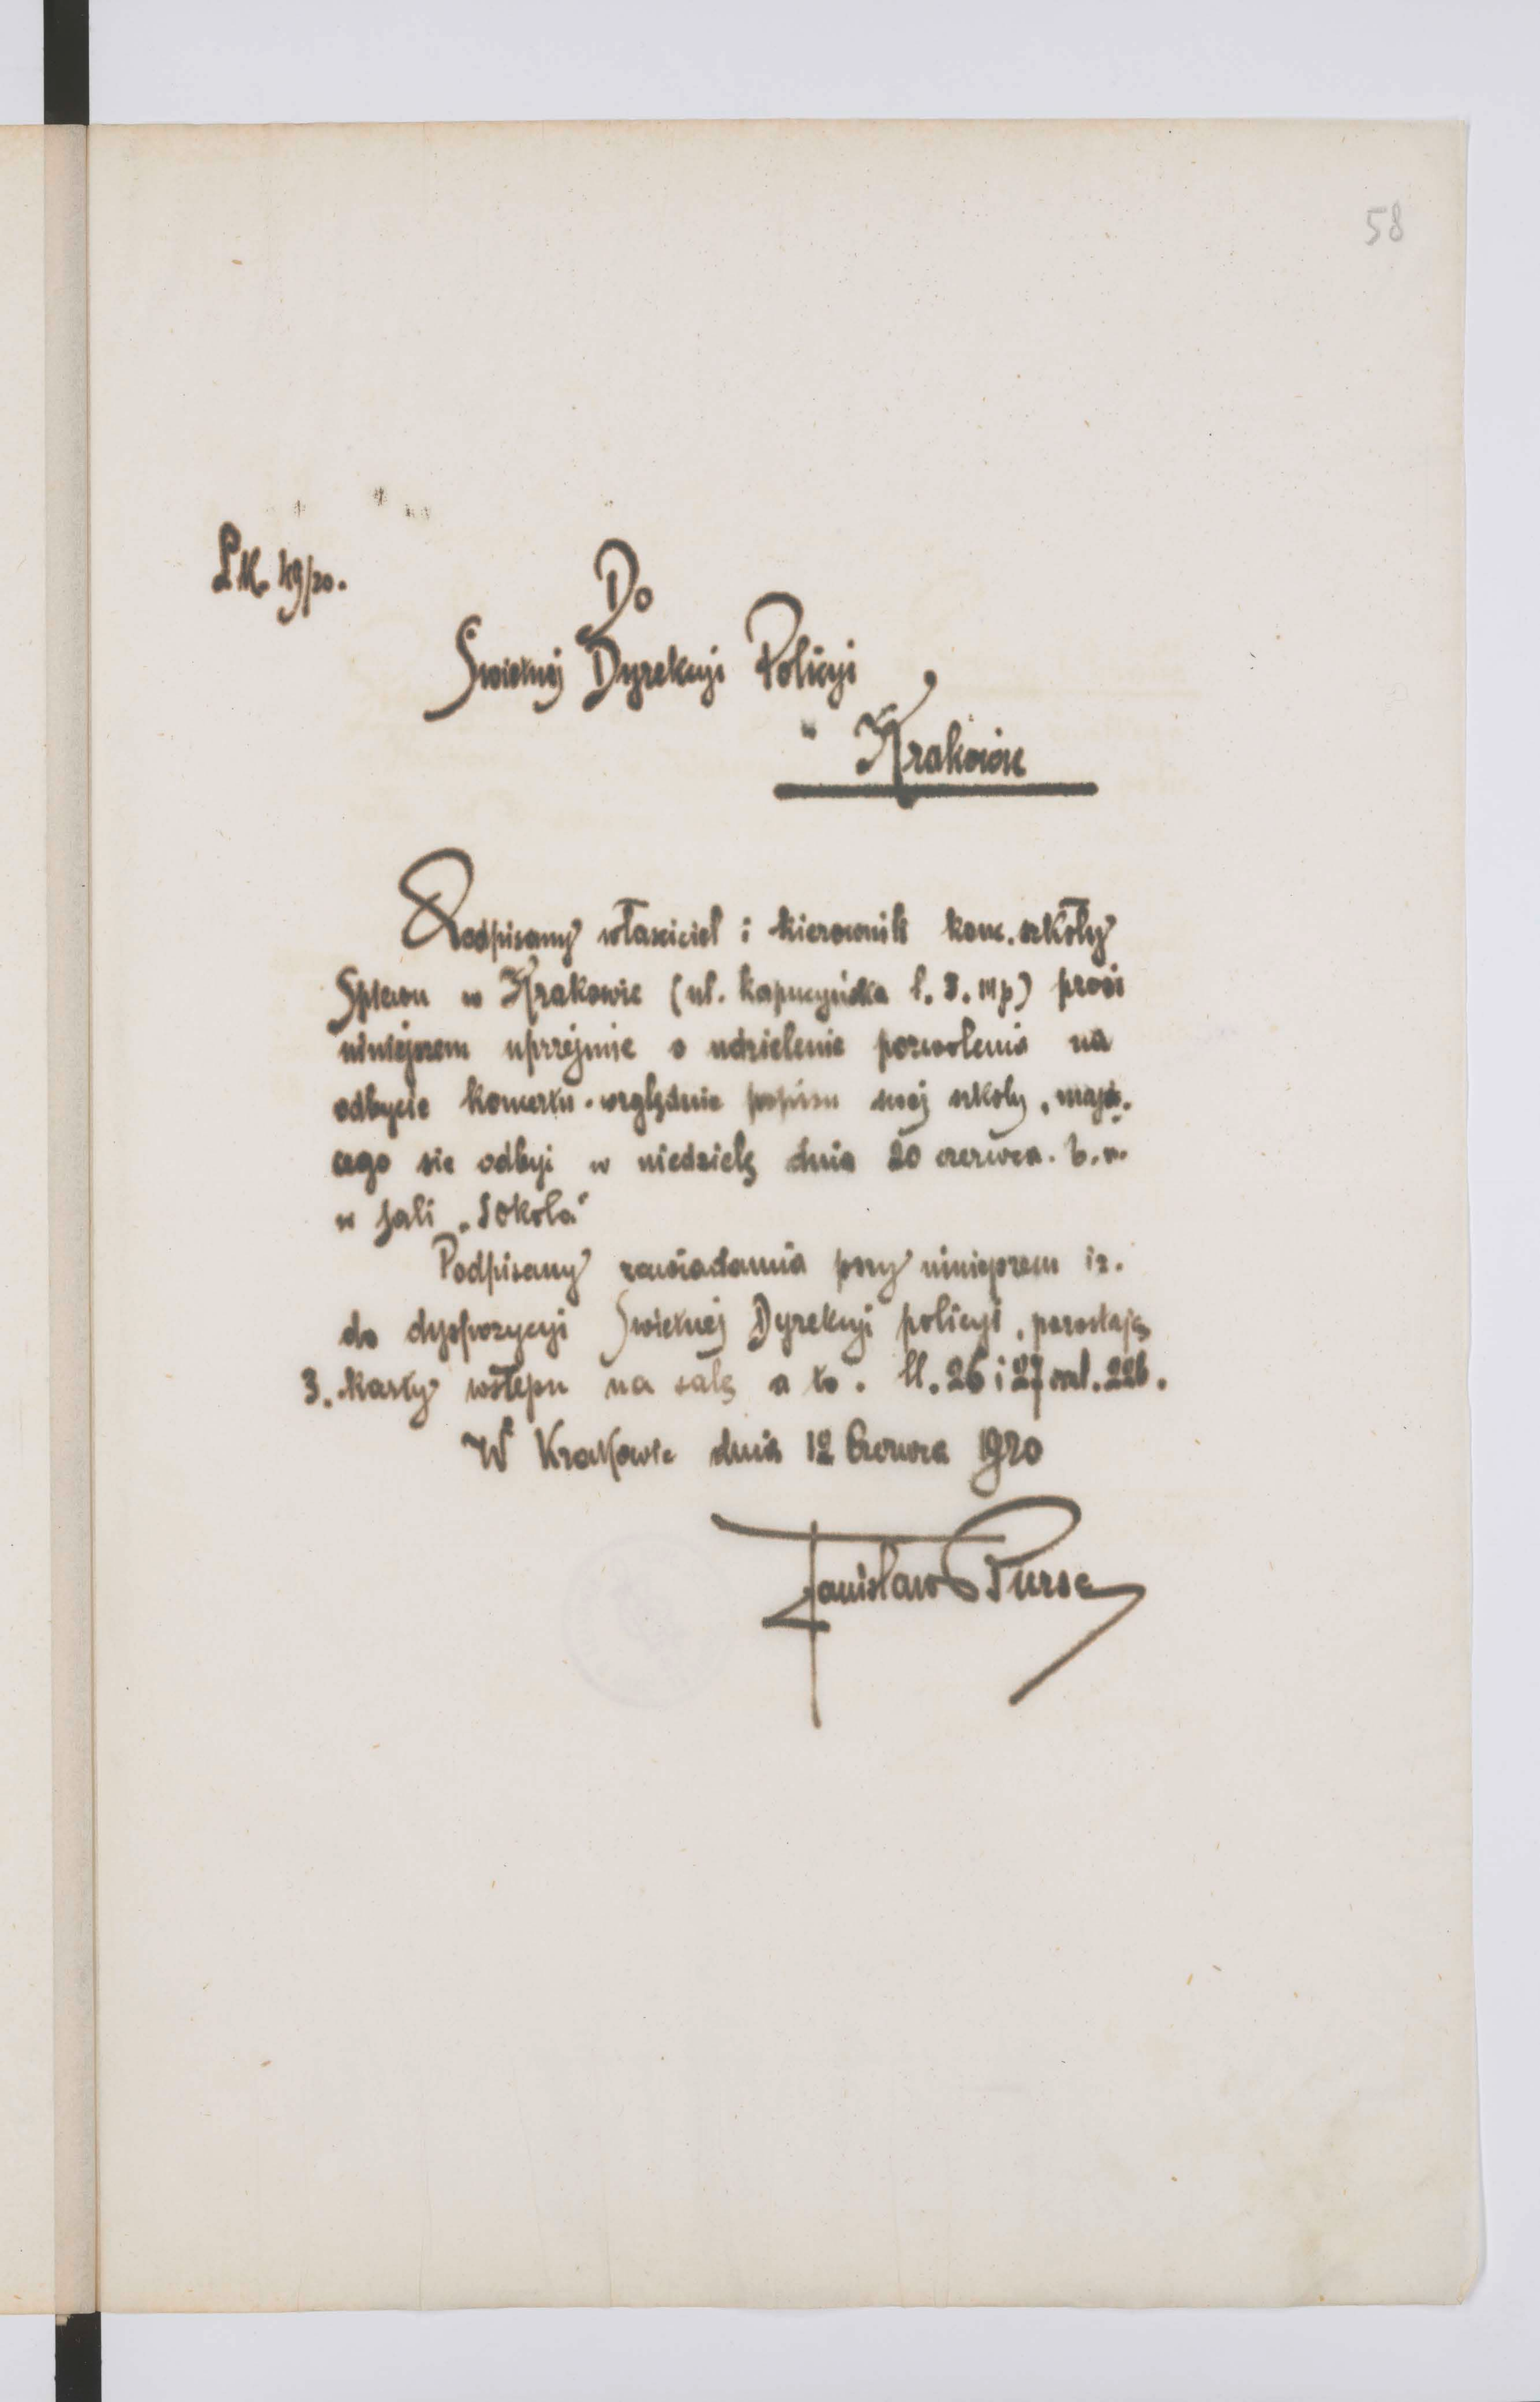 58
LK. 49/20.
Do
Swietnej Dyrekcyi Policyi
w Krakowie
Podpisany właściciel i kierownik konc. szkoły
Spiewu w Krakowie (ul. Kapucyńska l. 3. III p) prosi
niniejszem uprzejmie o udzielenie pozwolenia na
odbycie koncertu - względnie popisu swej szkoly, mają-
cego sie odbyć w niedzielę dnia 20 czerwca. b. r.
w sali „Sokola"
Podpisany zawiadamia przy niniejszem iz.
do dyspozycyi Swietnej Dyrekcyi policyi, pozostają
3. karty wstepu na salę a to. ll. 26 i 27 oraz l. 226.
W Krakowie dnia 12 Czerwca 1920
Stanisław Bursa